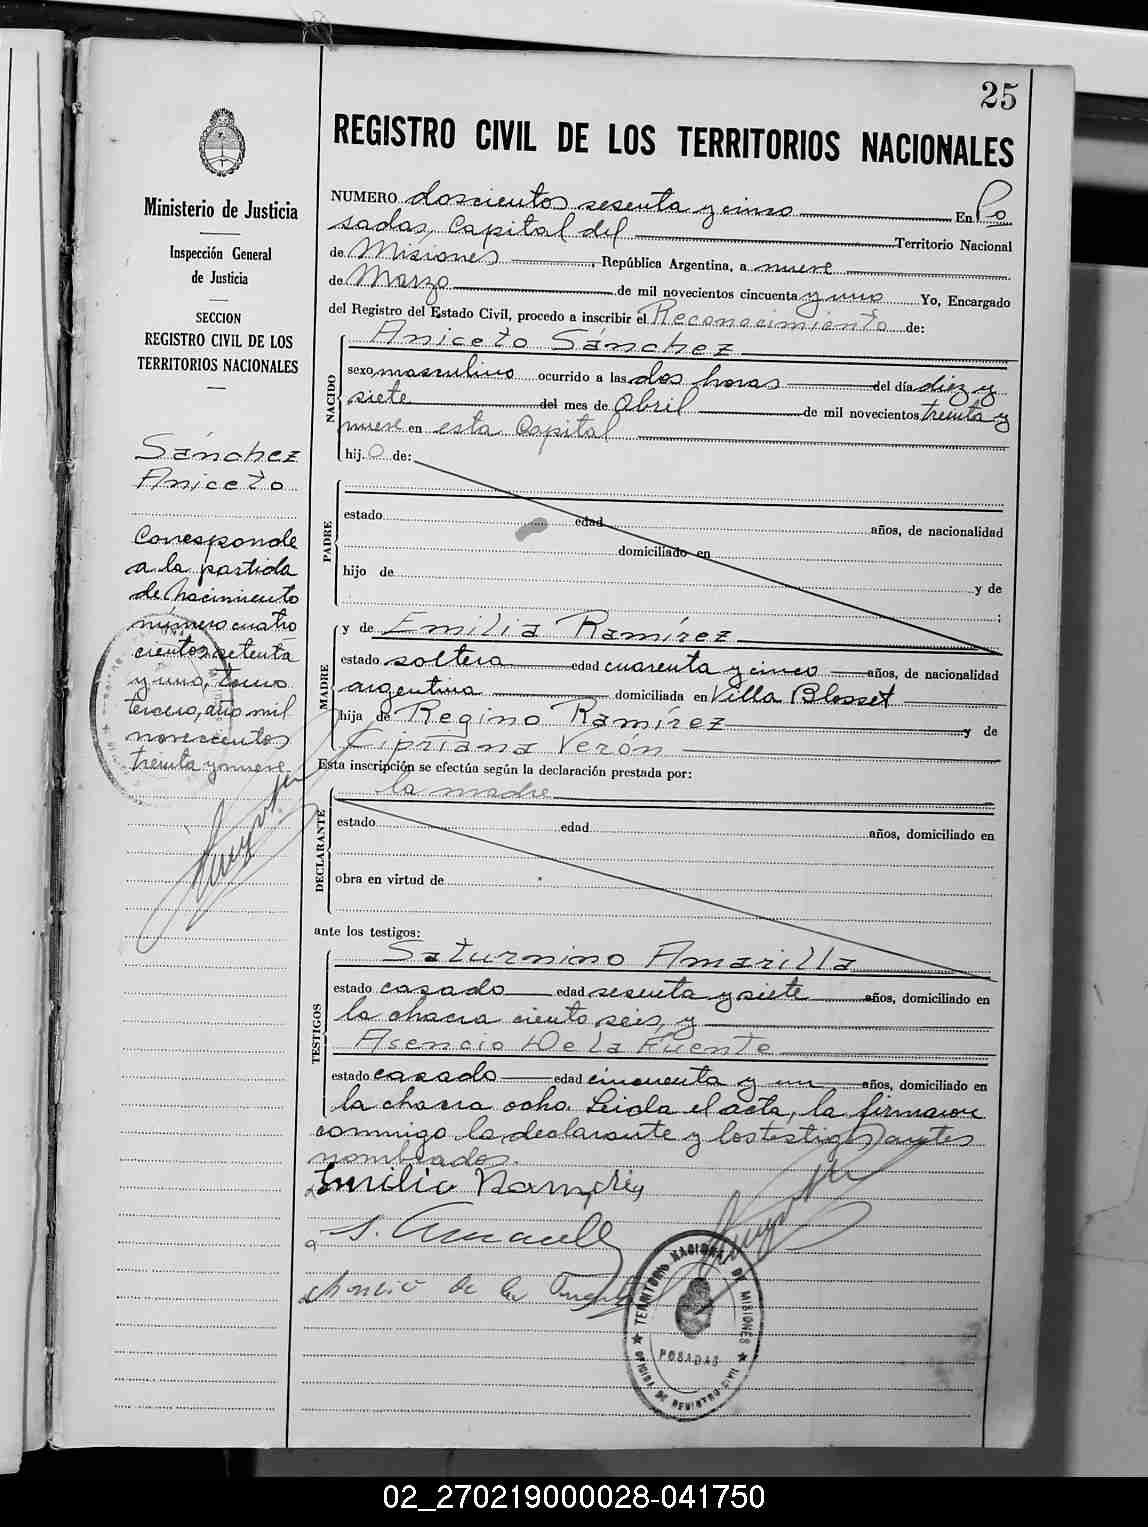 25
REGISTRO CIVIL DE LOS TERRITORIOS NACIONALES
Ministerio de Justicia
Inspección General
de Justicia
SECCION
REGISTRO CIVIL DE LOS
TERRITORIOS NACIONALES
Sánchez
Aniceto
Corresponde
a la partida
de Nacimiento
número cuatro
cientos setenta
y uno, tomo
tercero, año mil
novecientos
treinta y nueve.
NUMERO doscientos sesenta y cinco En Po
sadas, Capital del Territorio Nacional
de Misiones, República Argentina, a nueve
de Marzo de mil novecientos cincuenta y uno Yo, Encargado
del Registro del Estado Civil, procedo a inscribir el Reconocimiento de:
Aniceto Sánchez
NACIDO
sexo masculino ocurrido a las dos horas del día diez y
siete del mes de Abril de mil novecientos treinta y
nueve en esta Capital
hij.o de:
PADRE
estado edad años, de nacionalidad
domiciliado en
hijo de y de
;
MADRE
y de Emilia Ramírez
estado soltera edad cuarenta y cinco años, de nacionalidad
argentina domiciliada en Villa Blosset
hija de Regino Ramírez y de
Cipriana Verón
Esta inscripción se efectúa según la declaración prestada por:
la madre
DECLARANTE
estado edad años, domiciliado en
obra en virtud de
ante los testigos:
Saturnino Amarilla
TESTIGOS
estado casado edad sesenta y siete años, domiciliado en
la chacra ciento seis, y
Asencio De la Fuente
estado casado edad cincuenta y un años, domiciliado en
la chacra ocho. Leida el acta, la firmaron
conmigo la declarante y los testigos antes
nombrados.
Emilia Ramires
S. Amarilla
de la Fuente
TERRITORIO NACIONAL DE MISIONES
POSADAS
OFICINA DE REGISTRO CIVIL
02_270219000028-041750